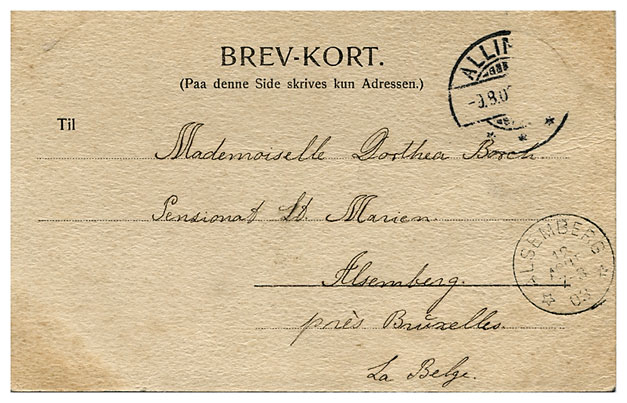 BREV-KORT.
(Paa denne Side skrives kun Adressen.)
Til
Mademoiselle Dorthea Borch.
Pensionat St. Marien.
Alsemberg.
près Bruxelles.
La Belge.
ALLIN
ALSEMBERG